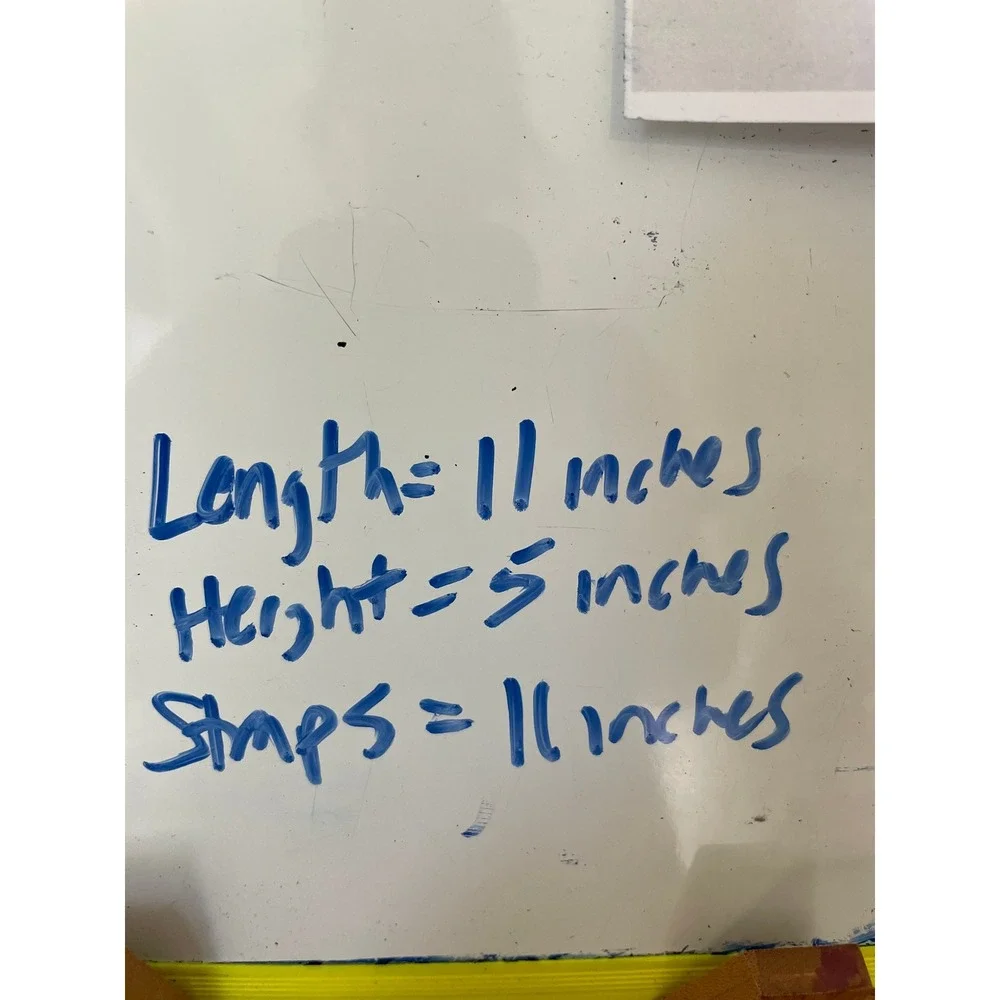 Length = 11 inches
Height = 5 inches
Straps = 11 inches